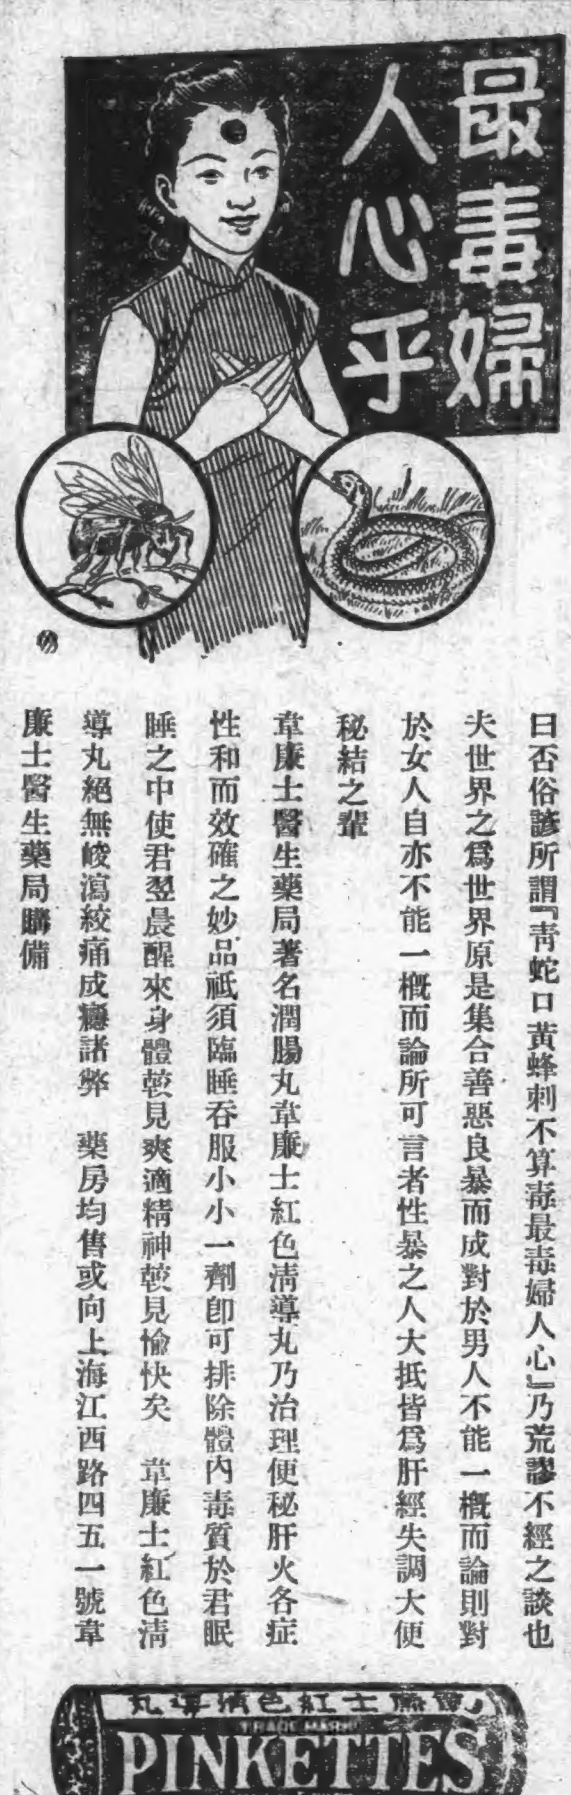 最毒婦
人心乎
曰否俗諺所謂『靑蛇口黃蜂刺不算毒最毒婦人心』乃荒謬不經之談也
夫世界之爲世界原是集合善惡良暴而成對於男人不能一槪而論則對
於女人自亦不能一槪而論所可言者性暴之人大抵皆爲肝經失調大便
秘結之輩
韋廉士醫生藥局著名潤腸丸韋廉士紅色淸導丸乃治理便秘肝火各症
性和而效確之妙品祗須臨睡吞服小小一劑卽可排除體內毒質於君眠
睡之中使君翌晨醒來身體較見爽適精神較見愉快矣　韋廉士紅色淸
導丸絕無峻瀉絞痛成癮諸弊　藥房均售或向上海江西路四五一號韋
廉士醫生藥局購備
丸導淸色紅士廉韋
TRADE MARK
PINKETTES